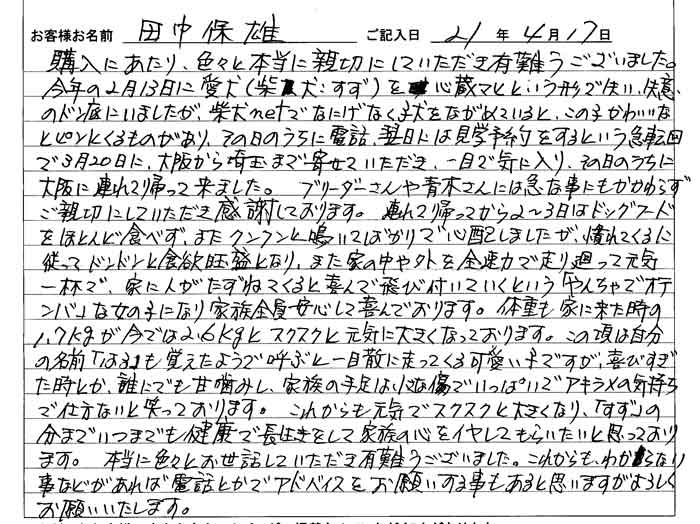 お客様お名前 田中保雄 ご記入日 21年4月17日
購入にあたり、色々と本当に親切にしていただき有難うございました。
今年の2月13日に愛犬(柴犬:すず)を心蔵マヒという形で失い、失意
のドン底にいましたが、柴犬netでなにげなく子犬をながめていると、この子かわいいな
とピンとくるものがあり、その日のうちに電話、翌日には見学予約をするという急転回
で3月20日に、大阪から埼玉まで寄せていただき、一目で気に入り、その日のうちに
大阪に連れて帰って来ました。 ブリーダーさんや青木さんには急な事にもかかわらず
ご親切にしていただき感謝しております。 連れて帰ってから2〜3日はドッグフード
をほとんど食べず、またクンクンと鳴いてばかりで心配しましたが、慣れてくるに
従ってドンドンと食欲旺盛となり、また家の中や外を全速力で走り廻って元気
一杯で、家に人がたずねてくると喜んで飛び付いていくという「やんちゃでオテ
ンバ」な女の子になり家族全員安心して喜んでおります。 体重も家に来た時の
1.7kgが今では2.6kgとスクスクと元気に大きくなっております。この頃は自分
の名前「はる」も覚えたようで呼ぶと一目散に走ってくる可愛い子ですが、喜びすぎ
た時とか、誰にでも甘噛みし、家族の手足は小さな傷でいっぱいでアキラメの気持ち
で仕方ないと笑っております。 これからも元気でスクスクと大きくなり、「すず」の
分までいつまでも健康で長生きをして家族の心をイヤしてもらいたいと思っており
ます。 本当に色々とお世話していただき有難うございました。これからも、わからない
事などがあれば電話とかでアドバイスをお願いする事もあると思いますがよろしく
お願いいたします。